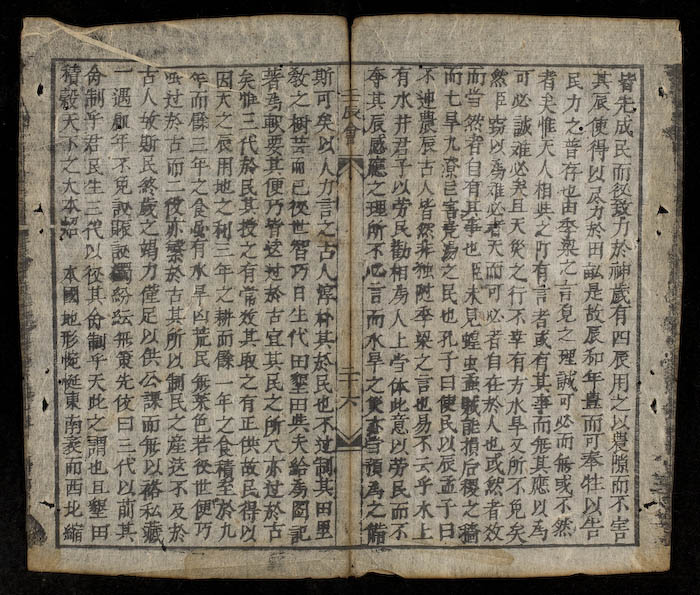 皆先成民而後致力於神歲有四辰用之以農隙而不害
其辰使得以尽力於田畝是故辰和年豊而可奉牲以告
民力之普存也由季梁之言見之理誠可必而無或不然
者矣惟天人相与之有言者或有其事而無其應以為
可必誠难必矣且天災之行不幸有方水旱又所不免矣
然臣窃以為难必者天而可必者自在於人也或然者效
而當然者自有其事也臣未見蝗虫蟊賊能損后稷之穡
而七旱九潦害堯湯之民也孔子曰使民以辰孟子曰
不違農辰古人皆然非独季梁之言也易不云乎水上
有水井君子以劳民勸相為人上当体此意以劳民而不
奪其辰感應之理所不必言而水旱之災亦當預為之備
壬辰會
二十六
斯可矣以人力言之古人淳朴其於民也不过制其田里
教之樹芸而已後世智巧日生代田墾田與夫給為圖記
著為畝要其便巧皆远过於古宜其民之所入亦过於古
矣惟三代於民其授之有常故其取之有正供故民得以
因天之辰用地之利三年之耕而馀一年之食積至於九
年而馀三年之食虽有水旱凶荒民無菜色若後世便巧
虽过於古而二役亦繁於古其所以制民之産不及於
古人故斯民終歲之竭力僅足以供公課而無以裕私藏
一遇凶年不免議賑議蠲紛紜無策先儒曰三代以前其
份制乎君民生三代以後其份制乎天此之謂也且墾田
積穀天下之大本 本國地形蜿蜒東南袤而西北縮